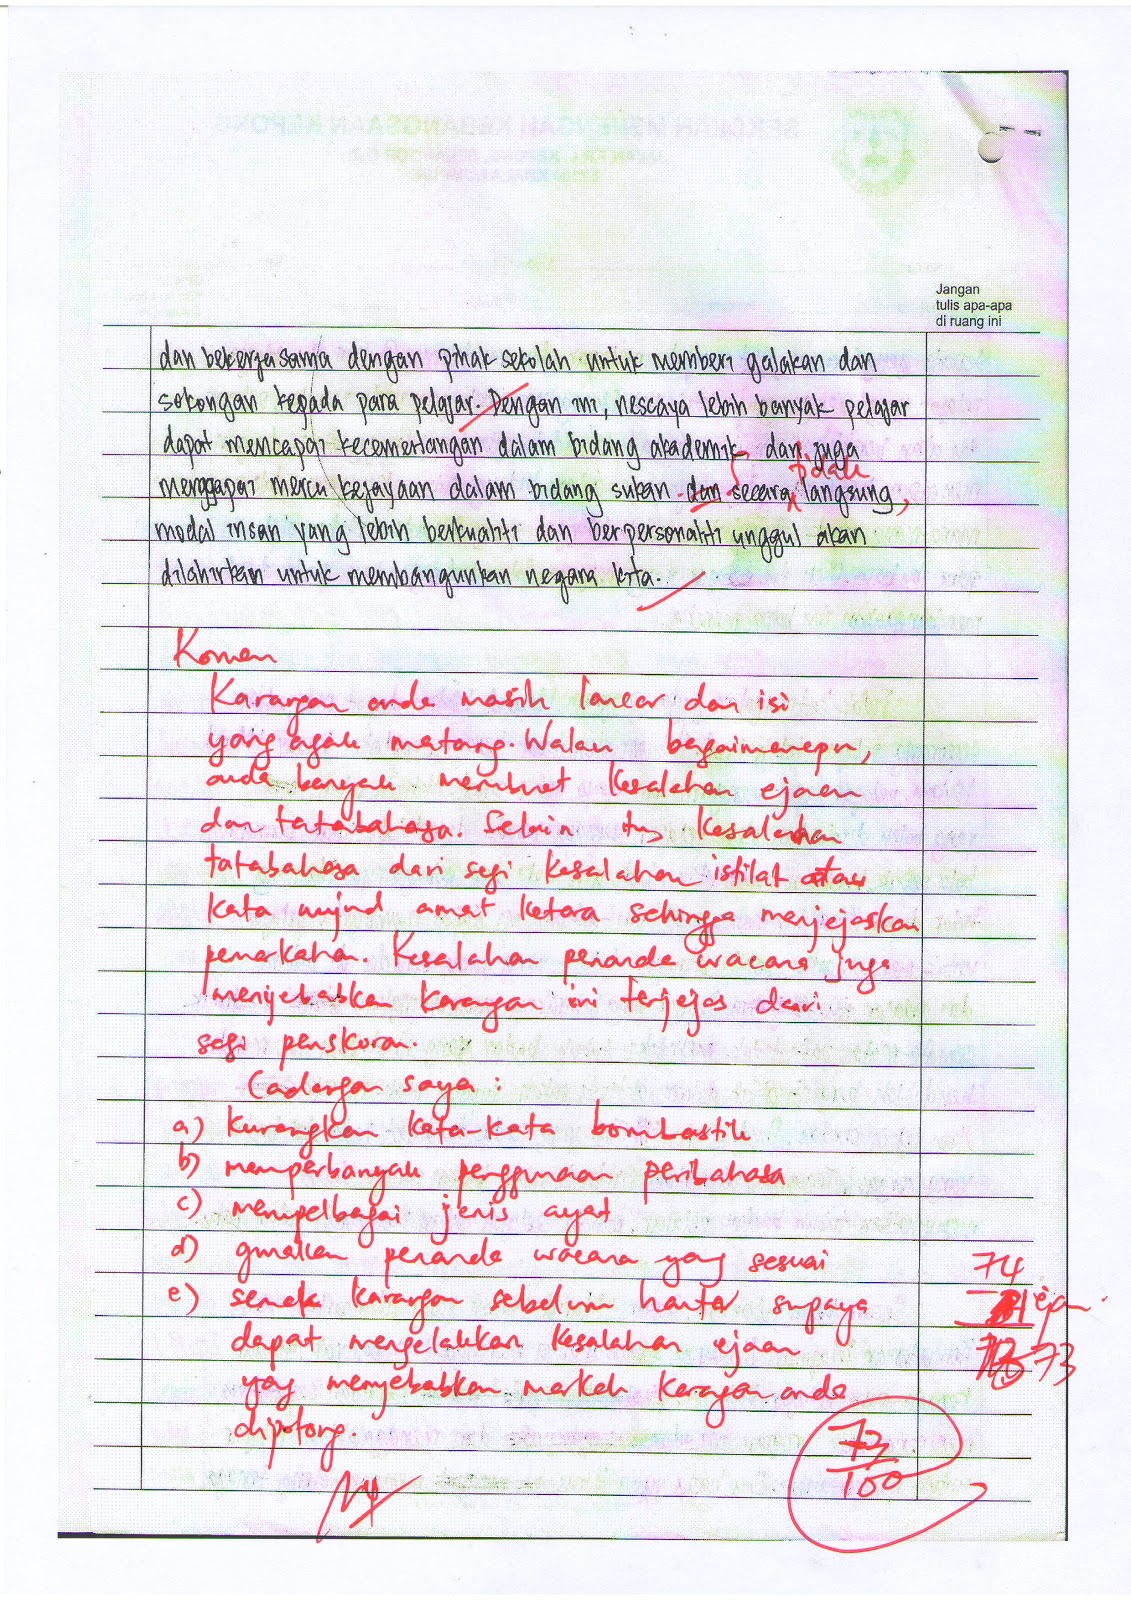 SEKOLAH MENENGAH KEBANGSAAN KEPONG
Jangan
tulis apa-apa
di ruang ini
dan bekerjasama dengan pihak sekolah untuk memberi galakan dan
sokongan kepada para pelajar. Dengan ini, nescaya lebih banyak pelajar
dapat mencapai kecemerlangan dalam bidang akademik, dan juga
tidak
menggapai mercu kejayaan dalam bidang sukan dan secara langsung,
modal insan yang lebih berkualiti dan berpersonaliti unggul akan
dilahirkan untuk membangunkan negara kita.
Komen
Karangan anda masih lancar dan isi
yang agak matang. Walau bagaimanapun,
anda banyak membuat kesalahan ejaan
dan tatabahasa. Selain itu, kesalahan
tatabahasa dari segi kesalahan istilah atau
kata wujud amat ketara sehingga menjejaskan
pemarkahan. Kesalahan penanda wacana juga
menyebabkan karangan ini terjejas dari
segi penskoran.
Cadangan saya :
a) kurangkan kata-kata bombastik
b) memperbanyak penggunaan peribahasa
c) mempelbagai jenis ayat
d) gunakan penanda wacana yang sesuai
74
e) semak karangan sebelum hantar supaya
dapat mengelakkan kesalahan ejaan
73
yang menyebabkan markah karangan anda
dipotong.
73
100